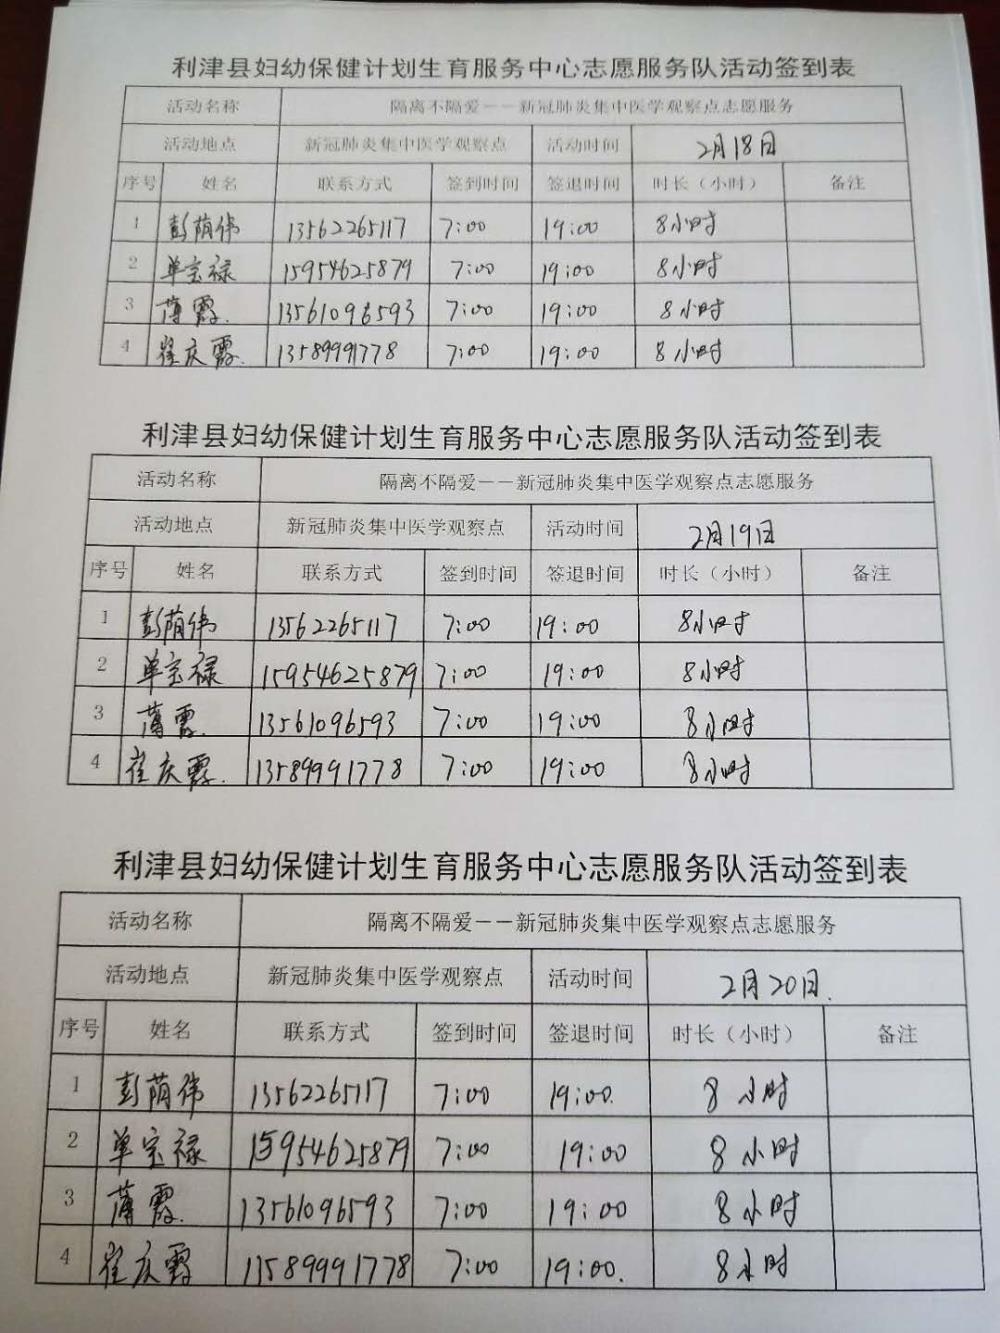 利津县妇幼保健计划生育服务中心志愿服务队活动签到表
活动名称 隔离不隔爱——新冠肺炎集中医学观察点志愿服务
活动地点 新冠肺炎集中医学观察点 活动时间 2月18日
序号 姓名 联系方式 签到时间 签退时间 时长（小时） 备注
1 彭荫伟 13562265117 7:00 19:00 8小时
2 单宝禄 15954625879 7:00 19:00 8小时
3 薄霞. 13561096593 7:00 19:00 8小时
4 崔庆霞. 13589991778 7:00 19:00 8小时
利津县妇幼保健计划生育服务中心志愿服务队活动签到表
活动名称 隔离不隔爱——新冠肺炎集中医学观察点志愿服务
活动地点 新冠肺炎集中医学观察点 活动时间 2月19日
序号 姓名 联系方式 签到时间 签退时间 时长（小时） 备注
1 彭荫伟 13562265117 7:00 19:00 8小时
2 单宝禄 15954625879 7:00 19:00 8小时
3 薄霞. 13561096593 7:00 19:00 8小时
4 崔庆霞. 13589991778 7:00 19:00 8小时
利津县妇幼保健计划生育服务中心志愿服务队活动签到表
活动名称 隔离不隔爱——新冠肺炎集中医学观察点志愿服务
活动地点 新冠肺炎集中医学观察点 活动时间 2月20日.
序号 姓名 联系方式 签到时间 签退时间 时长（小时） 备注
1 彭荫伟 13562265117 7:00 19:00. 8小时
2 单宝禄 15954625879 7:00 19:00 8小时
3 薄霞. 13561096593 7:00 19:00 8小时
4 崔庆霞 13589991778 7:00 19:00. 8小时